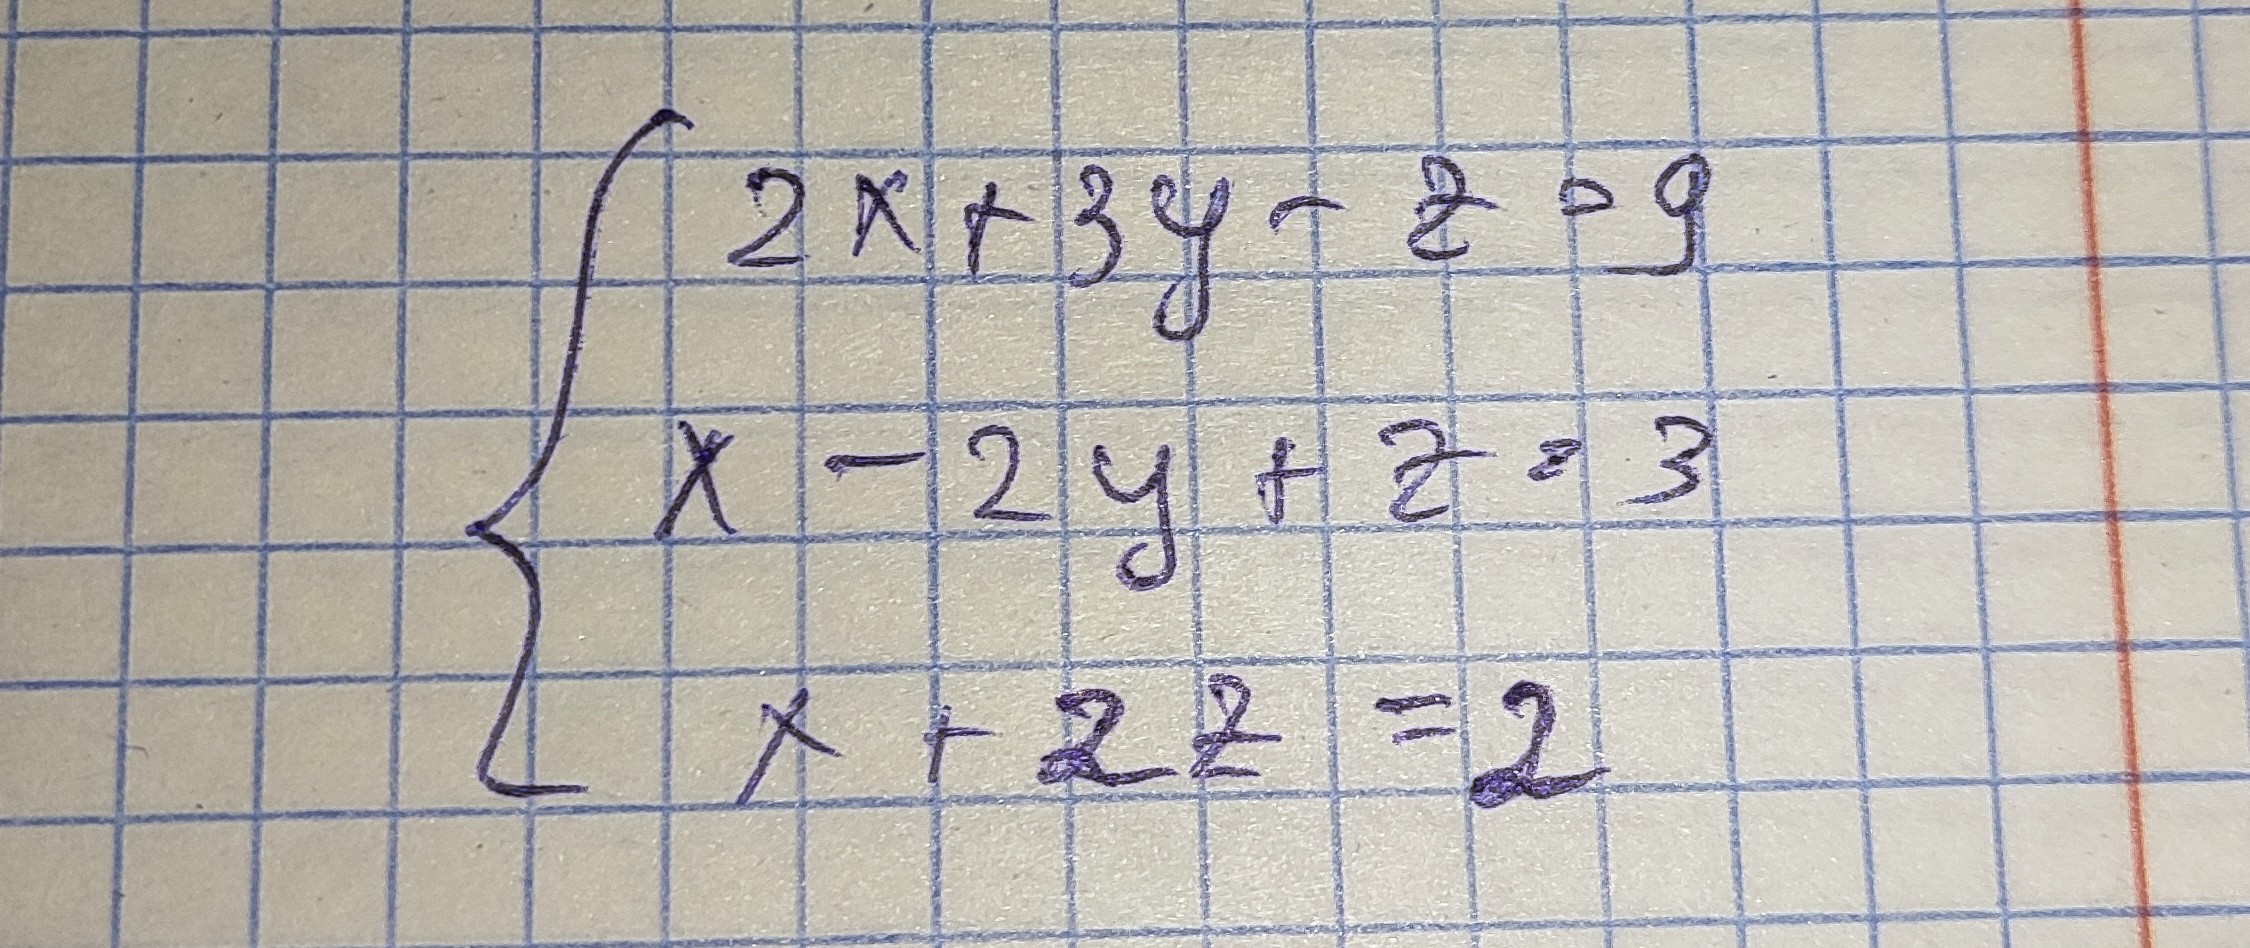 2x+3y-z=9
x-2y+z=3
x+2z=2